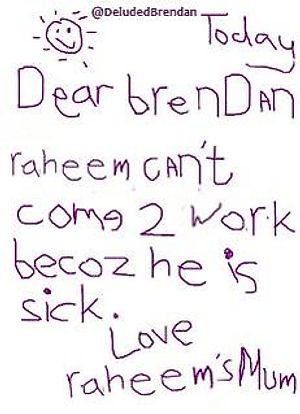 @DeludedBrendan
Today
Dear brenDAN
raheem cAn't
come 2 work
becoz he is
sick.
Love
raheem's Mum